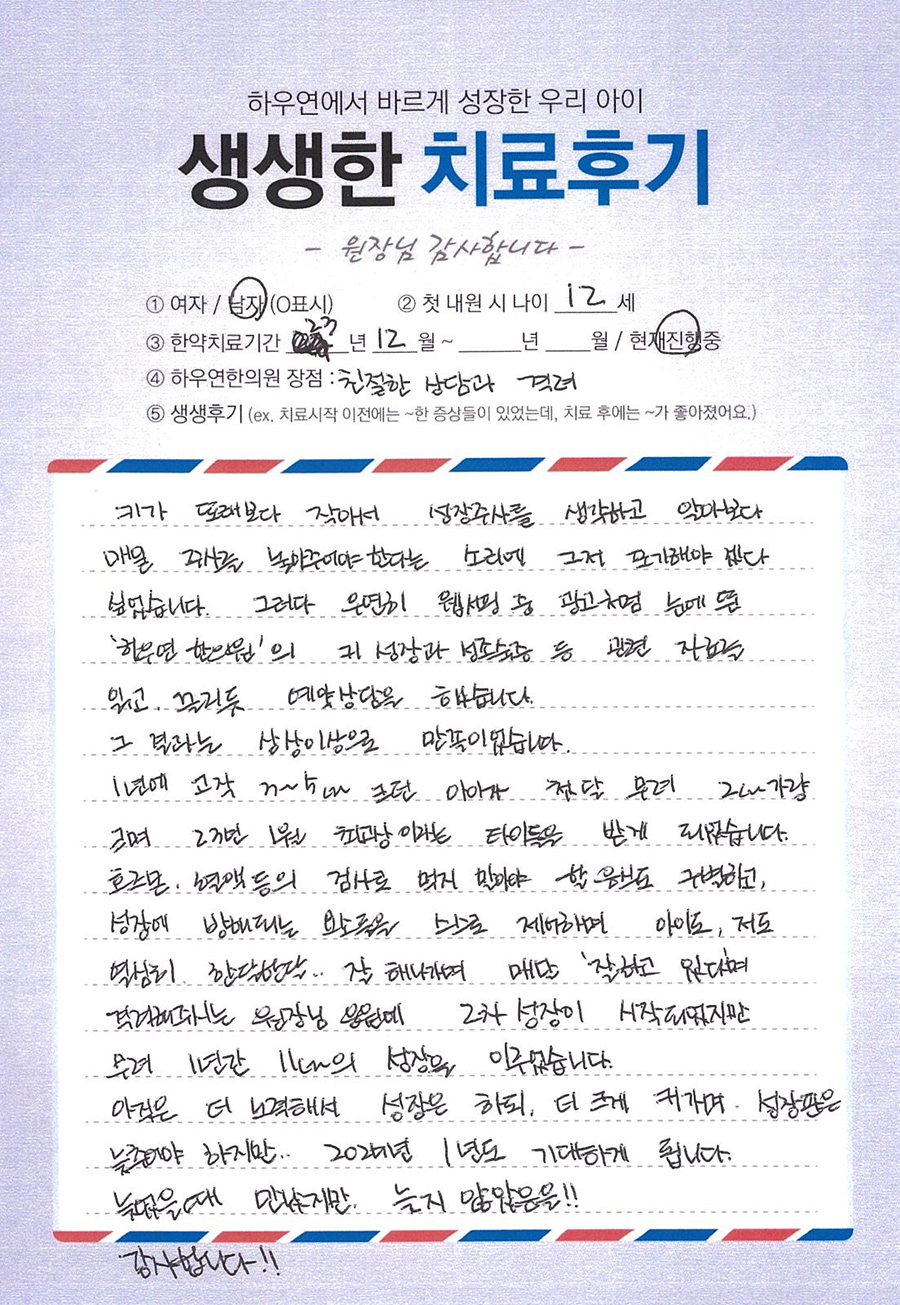 하우연에서 바르게 성장한 우리 아이
생생한 치료후기
- 원장님 감사합니다 -
① 여자 / 남자 (O표시) ② 첫 내원 시 나이 12 세
③ 한약치료기간 23 년 12 월 ~ 년 월 / 현재진행중
④ 하우연한의원 장점 : 친절한 상담과 격려
⑤ 생생후기 (ex. 치료시작 이전에는 ~한 증상들이 있었는데, 치료 후에는 ~가 좋아졌어요.)
키가 또래보다 작아서 성장주사를 생각하고 알아보다
매일 주사를 놓아주어야 한다는 소리에 그저 포기해야 겠다
싶었습니다. 그러다 우연히 웹서핑 중 광고처럼 눈에 뜬
'하우연 한의원'의 키 성장과 성조숙증 등 관련 자료를
읽고, 끌리듯 예약상담을 했습니다.
그 결과는 상상이상으로 만족이었습니다.
1년에 고작 cm 크던 아이가 첫 달 무려 2cm가량
크며 23년 1월 최고상이라는 타이틀을 받게 되었습니다.
호르몬, 혈액 등의 검사로 먹지 말아야 할 음식도 구별하고,
성장에 방해되는 요소들을 스스로 제어하며 아이도, 저도
열심히 한달한달.. 잘 해나가며 매달 '잘하고 있다'며
격려해주시는 원장님 응원에 2차 성장이 시작되었지만
무려 1년간 11cm의 성장을 이루었습니다.
아직은 더 노력해서 성장은 하되, 더 크게 키가며. 성장판은
늦춰야 하지만.. 2025년 1년도 기대하게 됩니다.
늦었을때 만났지만, 늦지 않았음을!!
감사합니다!!